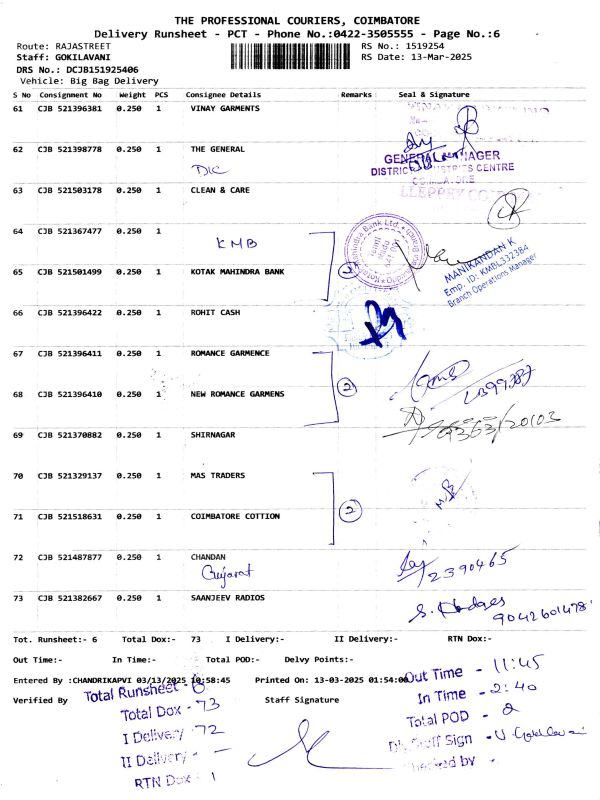 THE PROFESSIONAL COURIERS, COIMBATORE
Delivery Runsheet - PCT - Phone No.:0422-3505555 - Page No.:6
Route: RAJASTREET RS No.: 1519254
Staff: GOKILAVANI RS Date: 13-Mar-2025
DRS No.: DCJB151925406
Vehicle: Big Bag Delivery
S No Consignment No Weight PCS Consignee Details Remarks Seal & Signature
61 CJB 521396381 0.250 1 VINAY GARMENTS
62 CJB 521398778 0.250 1 THE GENERAL
DIC
GENERAL MANAGER
DISTRICT INDUSTRIES CENTRE
COIMBATORE
63 CJB 521503178 0.250 1 CLEAN & CARE
64 CJB 521367477 0.250 1
KMB
Mahindra Bank Ltd.
MANIKANDAN K
Emp. ID: KMBL332384
Branch Operations Manager
65 CJB 521501499 0.250 1 KOTAK MAHINDRA BANK
2
66 CJB 521396422 0.250 1 ROHIT CASH
67 CJB 521396411 0.250 1 ROMANCE GARMENCE
2
68 CJB 521396410 0.250 1 NEW ROMANCE GARMENS
69 CJB 521370882 0.250 1 SHIRNAGAR
70 CJB 521329137 0.250 1 MAS TRADERS
2
71 CJB 521518631 0.250 1 COIMBATORE COTTION
72 CJB 521487877 0.250 1 CHANDAN
Gujarat
2390465
73 CJB 521382667 0.250 1 SAANJEEV RADIOS
9042601478
Tot. Runsheet:- 6 Total Dox:- 73 I Delivery:- II Delivery:- RTN Dox:-
Out Time:- In Time:- Total POD:- Delvy Points:-
Entered By :CHANDRIKAPVI 03/13/2025 10:58:45 Printed On: 13-03-2025 01:54:00
Verified By Staff Signature
Total Runsheet - 6
Total Dox - 73
I Delivery - 72
II Delivery - -
RTN Dox - 1
Out Time - 11:45
In Time - 2:40
Total POD - 2
Dly Staff Sign - V Gokilavani
Checked by -